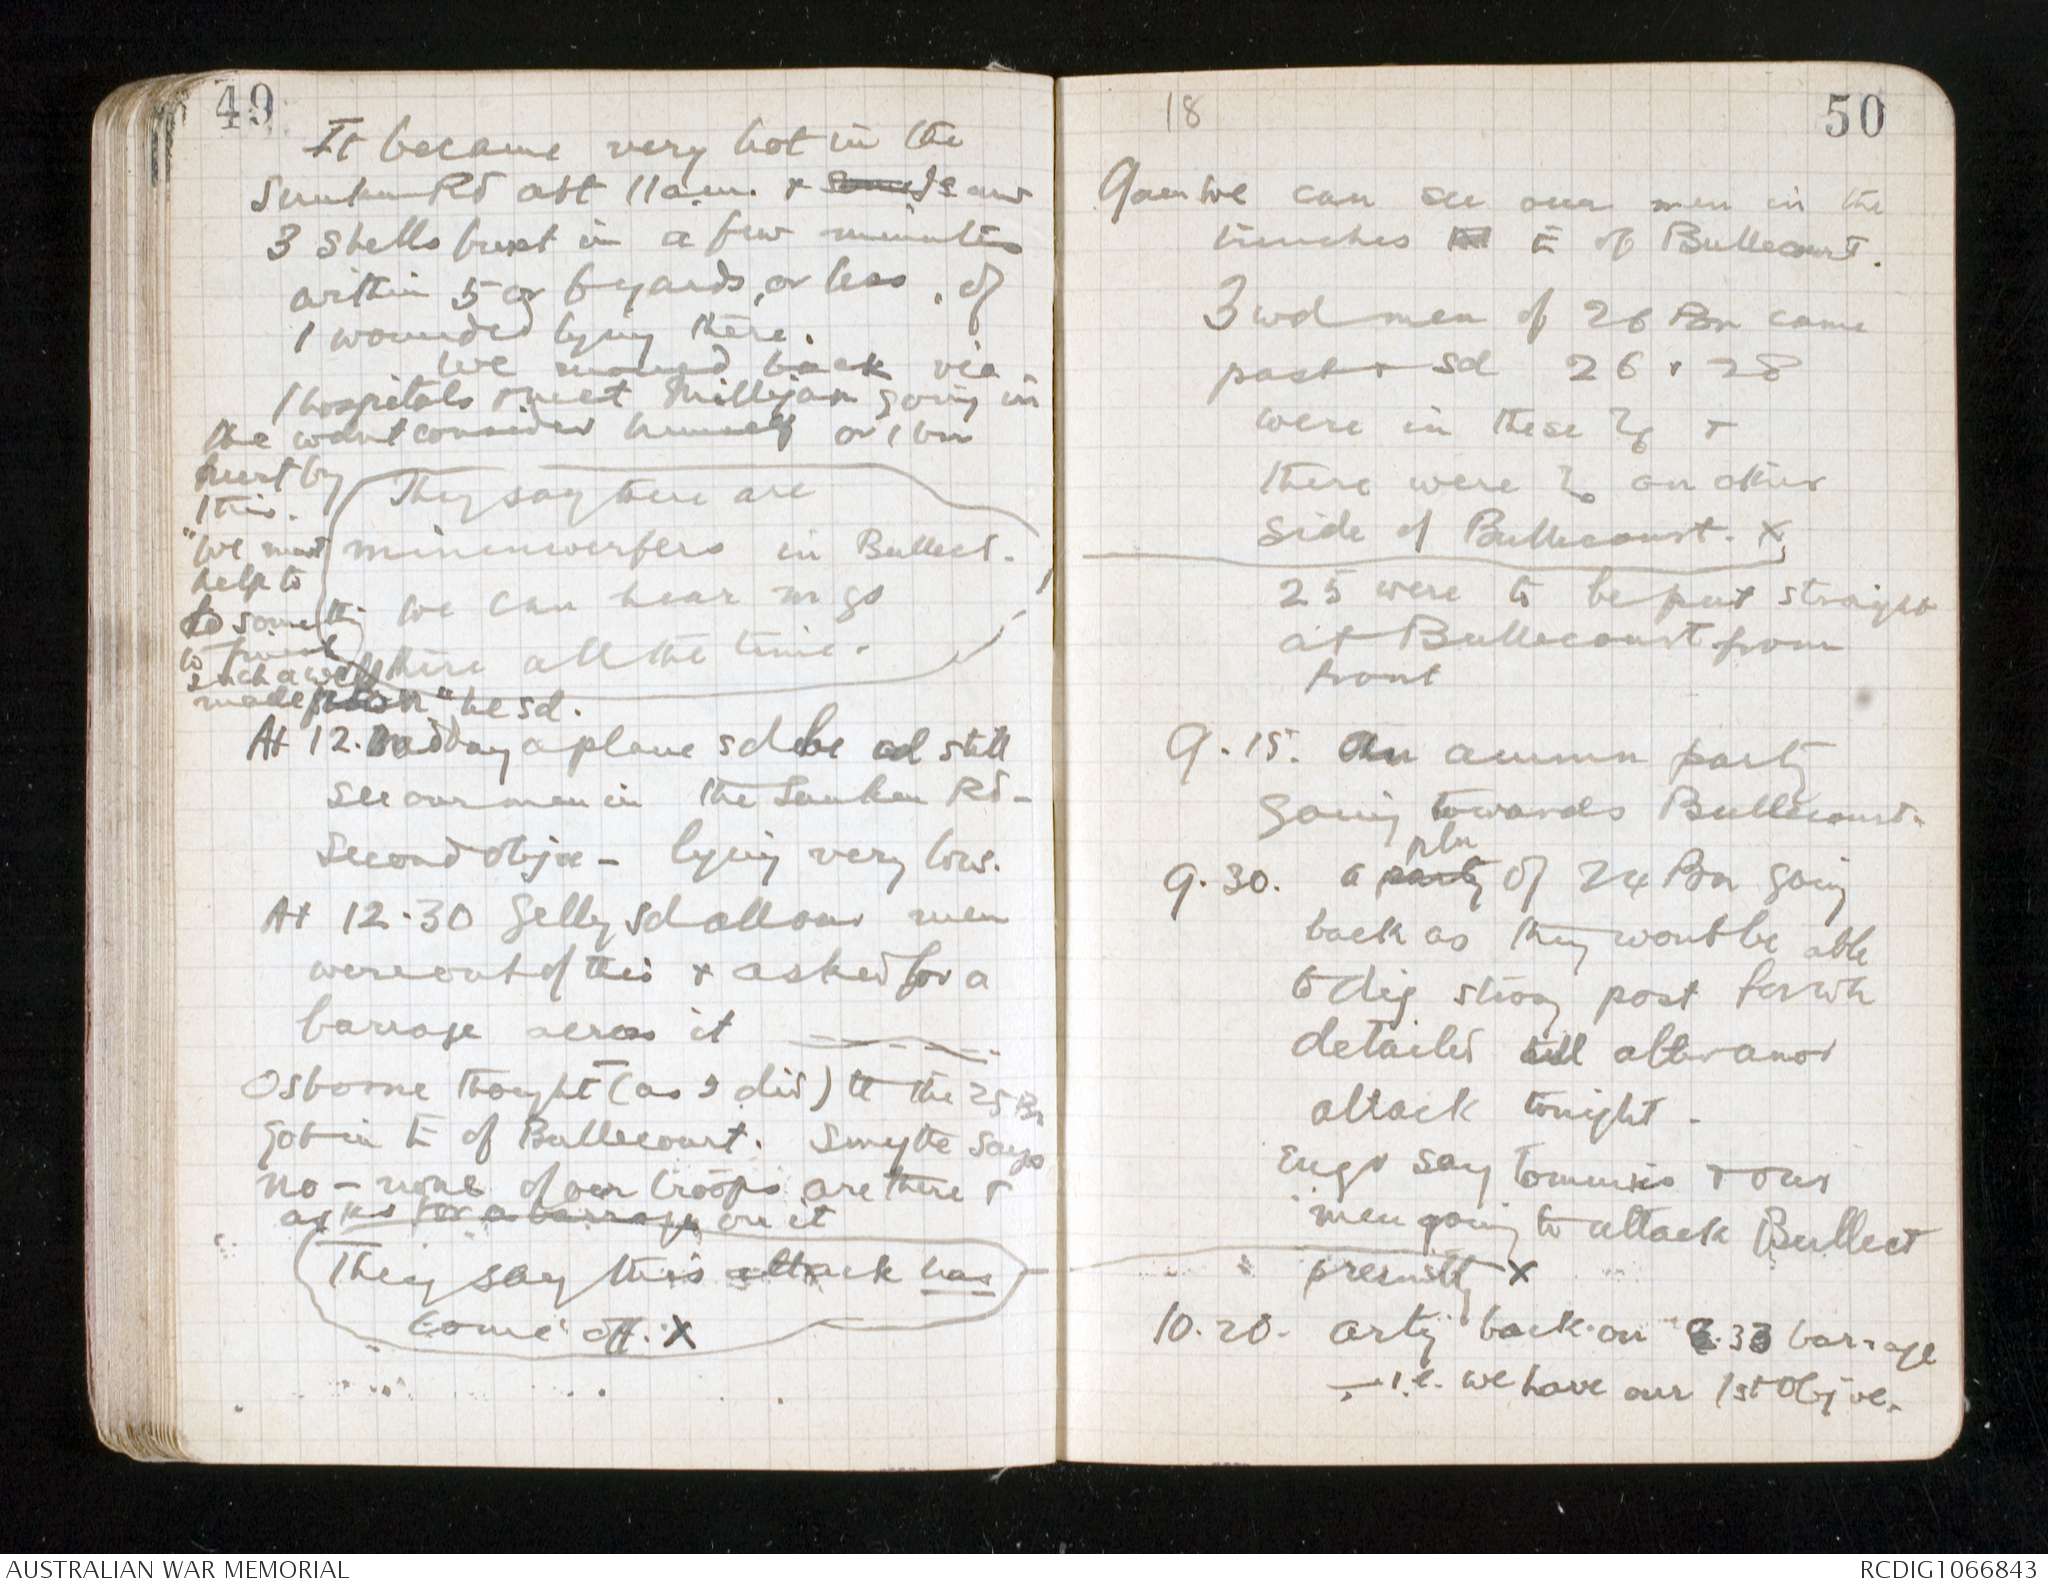 49
It became very hot in the
Sunken Rd abt 11 a.m. & saw
3 shells burst in a few minutes
within 5 or 6 yards, or less, of
wounded lying there.
We moved back via
hospitals & met Milligan going in
he wont consider himself or
hurt by
this.
"We must
help to
do something
to
such a well
made plan" he sd.
They say there are
minenwerfers in Bullect.
We can hear m gs
there all the time.
At 12. Midday a plane sd he cd still
see our men in the Sunken Rd -
Second objve - lying very low.
At 12.30 Gelly sd all our men
were out of this & asked for a
barrage across it
Osborne thought (as I did) tt the 25 Bn
got in E of Bullecourt. Smythe says
no - none of our troops are there &
asks for a barrage on it
They say this attack has
come off. X
18
50
9 am We can see our men in the
trenches E of Bullecourt.
3 wd men of 26 Bn came
past & sd 26 & 28
were in these &
there were on other
side of Bullecourt. X
25 were to be put straight
at Bullecourt from
front
9.15. An ammn party
going towards Bullecourt.
pln
9.30. a party of 24 Bn going
back as they wont be able
to dig strong post for wh
detailed till after anor
attack tonight.
Engrs say Tommies & our
men going to attack Bullect
presently X
10.20. Arty back on 3.33 barrage
- i.e. we have our 1st Objve.
AUSTRALIAN WAR MEMORIAL
RCDIG1066843